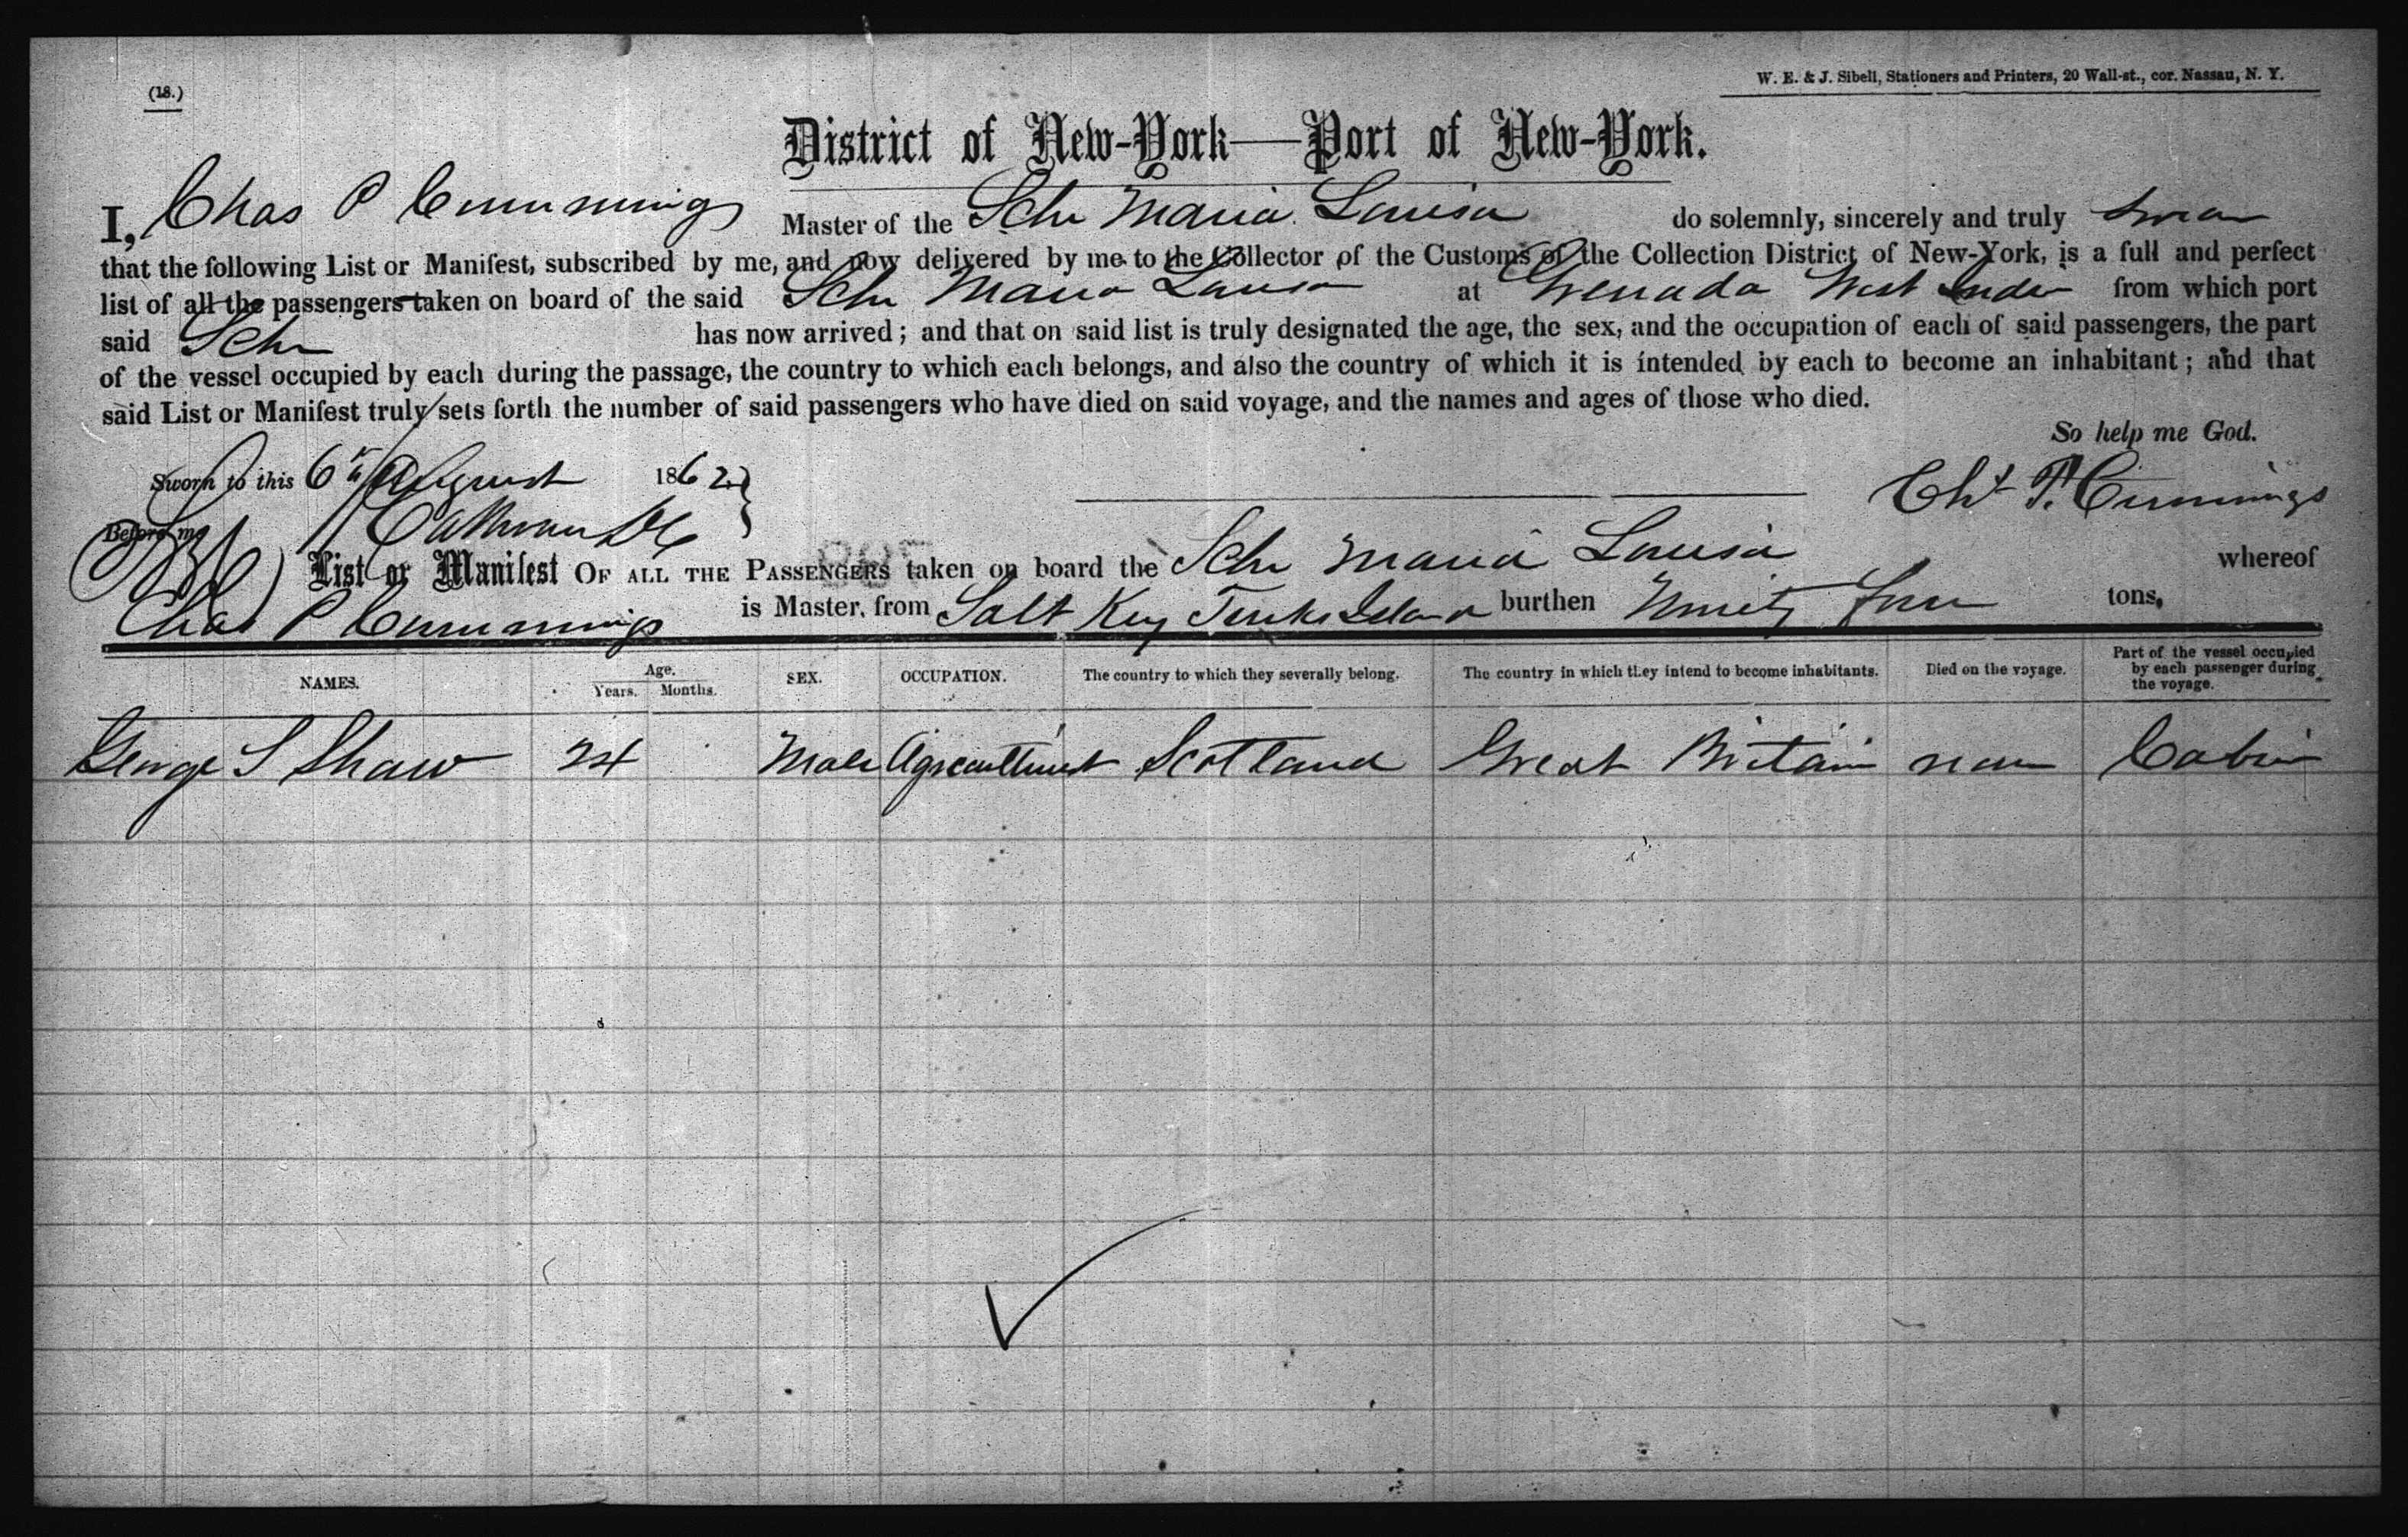 (18.)
W. E. & J. Sibell, Stationers and Printers, 20 Wall-st., cor. Nassau, N. Y.
District of New-York—Port of New-York.
I, Chas P Cummings Master of the Schr Maria Louisa do solemnly, sincerely and truly swear
that the following List or Manifest, subscribed by me, and now delivered by me to the Collector of the Customs of the Collection District of New-York, is a full and perfect
list of all the passengers taken on board of the said Schr Maria Louisa at Grenada West Indies from which port
said Schr has now arrived; and that on said list is truly designated the age, the sex, and the occupation of each of said passengers, the part
of the vessel occupied by each during the passage, the country to which each belongs, and also the country of which it is intended by each to become an inhabitant; and that
said List or Manifest truly sets forth the number of said passengers who have died on said voyage, and the names and ages of those who died.
So help me God.
Sworn to this 6th August 1862
Chs P. Cummings
Before me
List or Manifest OF ALL THE PASSENGERS taken on board the Schr Maria Louisa whereof
Chas P Cummings is Master, from Salt Key Turks Island burthen Ninety Four tons,
NAMES. Age. Years. Months. SEX. OCCUPATION. The country to which they severally belong. The country in which they intend to become inhabitants. Died on the voyage. Part of the vessel occupied by each passenger during the voyage.
George S Shaw 24 Male Agriculturist Scotland Great Britain none Cabin